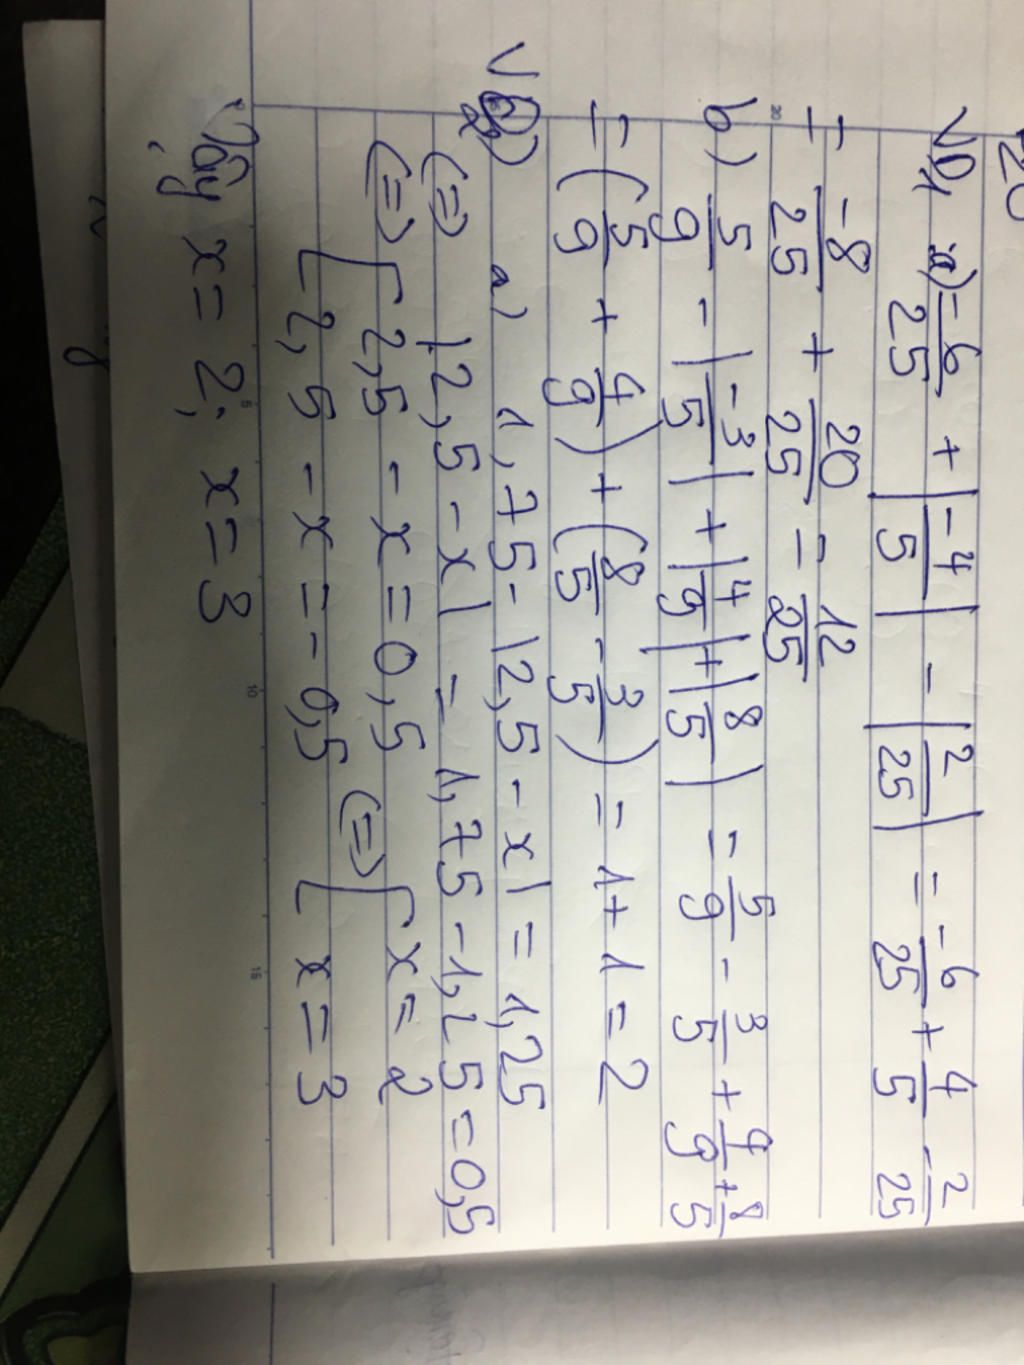 20
VD1 a) -6/25 + |-4/5| - |2/25| = -6/25 + 4/5 - 2/25
= -8/25 + 20/25 = 12/25
b) 5/9 - |-3/5| + |4/9| + |8/5| = 5/9 - 3/5 + 4/9 + 8/5
= (5/9 + 4/9) + (8/5 - 3/5) = 1 + 1 = 2
VD2 a) 1,75 - |2,5 - x| = 1,25
(=) |2,5 - x| = 1,75 - 1,25 = 0,5
(=) [2,5 - x = 0,5 (=) [x = 2
[2,5 - x = -0,5 [x = 3
Vậy x = 2; x = 3